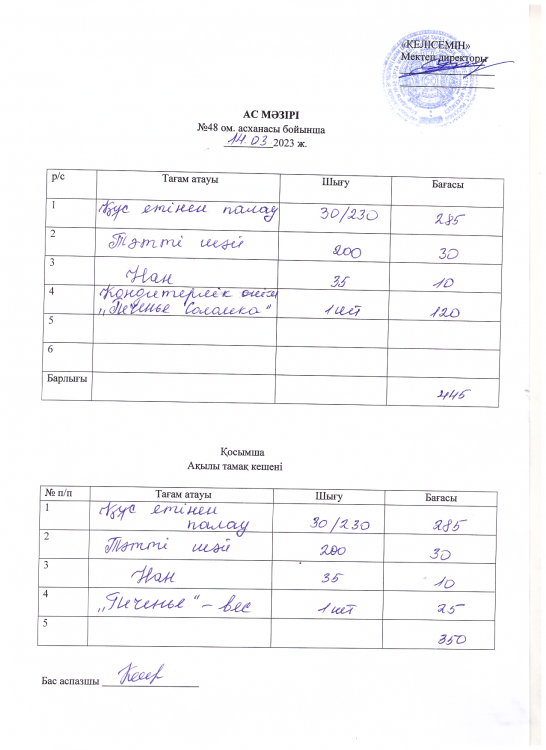 «КЕЛІСЕМІН»
Мектеп директоры
АС МӘЗІРІ
№48 ом. асханасы бойынша
14.03 2023 ж.
р/с Тағам атауы Шығу Бағасы
1 Құс етінен палау 30/230 285
2 Тәтті шәй 200 30
3 Нан 35 10
4 Кондитерлік өнім
„Печенье Соломка" 1 шт 120
5
6
Барлығы 445
Қосымша
Ақылы тамақ кешені
№ п/п Тағам атауы Шығу Бағасы
1 Құс етінен
палау 30/230 285
2 Тәтті шәй 200 30
3 Нан 35 10
4 „Печенье" - вес 1 шт 25
5 350
Бас аспазшы